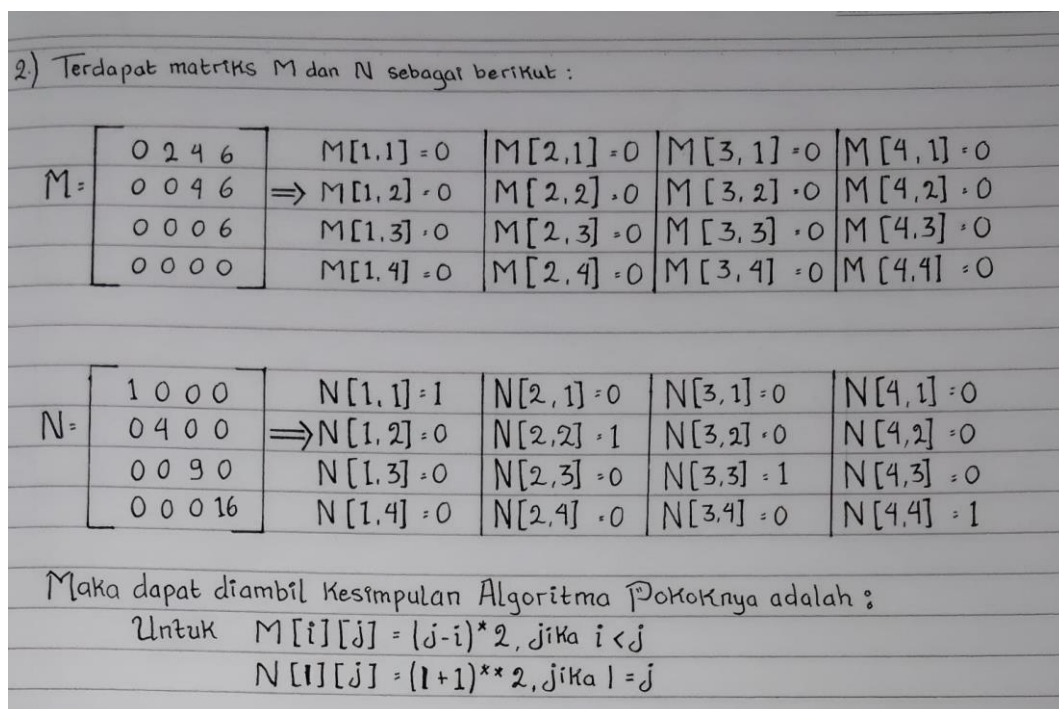 2.) Terdapat matriks M dan N sebagai berikut :
0 2 4 6 M[1,1] = 0 M[2,1] = 0 M[3,1] = 0 M[4,1] = 0
M = 0 0 4 6 ⇒ M[1,2] = 0 M[2,2] = 0 M[3,2] = 0 M[4,2] = 0
0 0 0 6 M[1,3] = 0 M[2,3] = 0 M[3,3] = 0 M[4,3] = 0
0 0 0 0 M[1,4] = 0 M[2,4] = 0 M[3,4] = 0 M[4,4] = 0
1 0 0 0 N[1,1] = 1 N[2,1] = 0 N[3,1] = 0 N[4,1] = 0
N = 0 4 0 0 ⇒ N[1,2] = 0 N[2,2] = 1 N[3,2] = 0 N[4,2] = 0
0 0 9 0 N[1,3] = 0 N[2,3] = 0 N[3,3] = 1 N[4,3] = 0
0 0 0 16 N[1,4] = 0 N[2,4] = 0 N[3,4] = 0 N[4,4] = 1
Maka dapat diambil Kesimpulan Algoritma Pokoknya adalah :
Untuk M[i][j] = (j-i)* 2, jika i < j
N[I][j] = (I+1)** 2, jika I = j